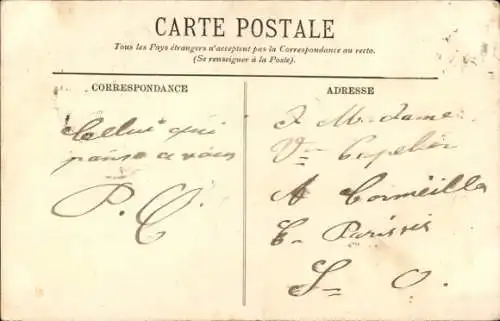 CARTE POSTALE
Tous les Pays étrangers n'acceptent pas la Correspondance au recto.
(Se renseigner à la Poste).
CORRESPONDANCE
ADRESSE
Celui qui
panse a vous
P. C.
Madame
Vve
A Cormeilla
En Parisis
S= O.